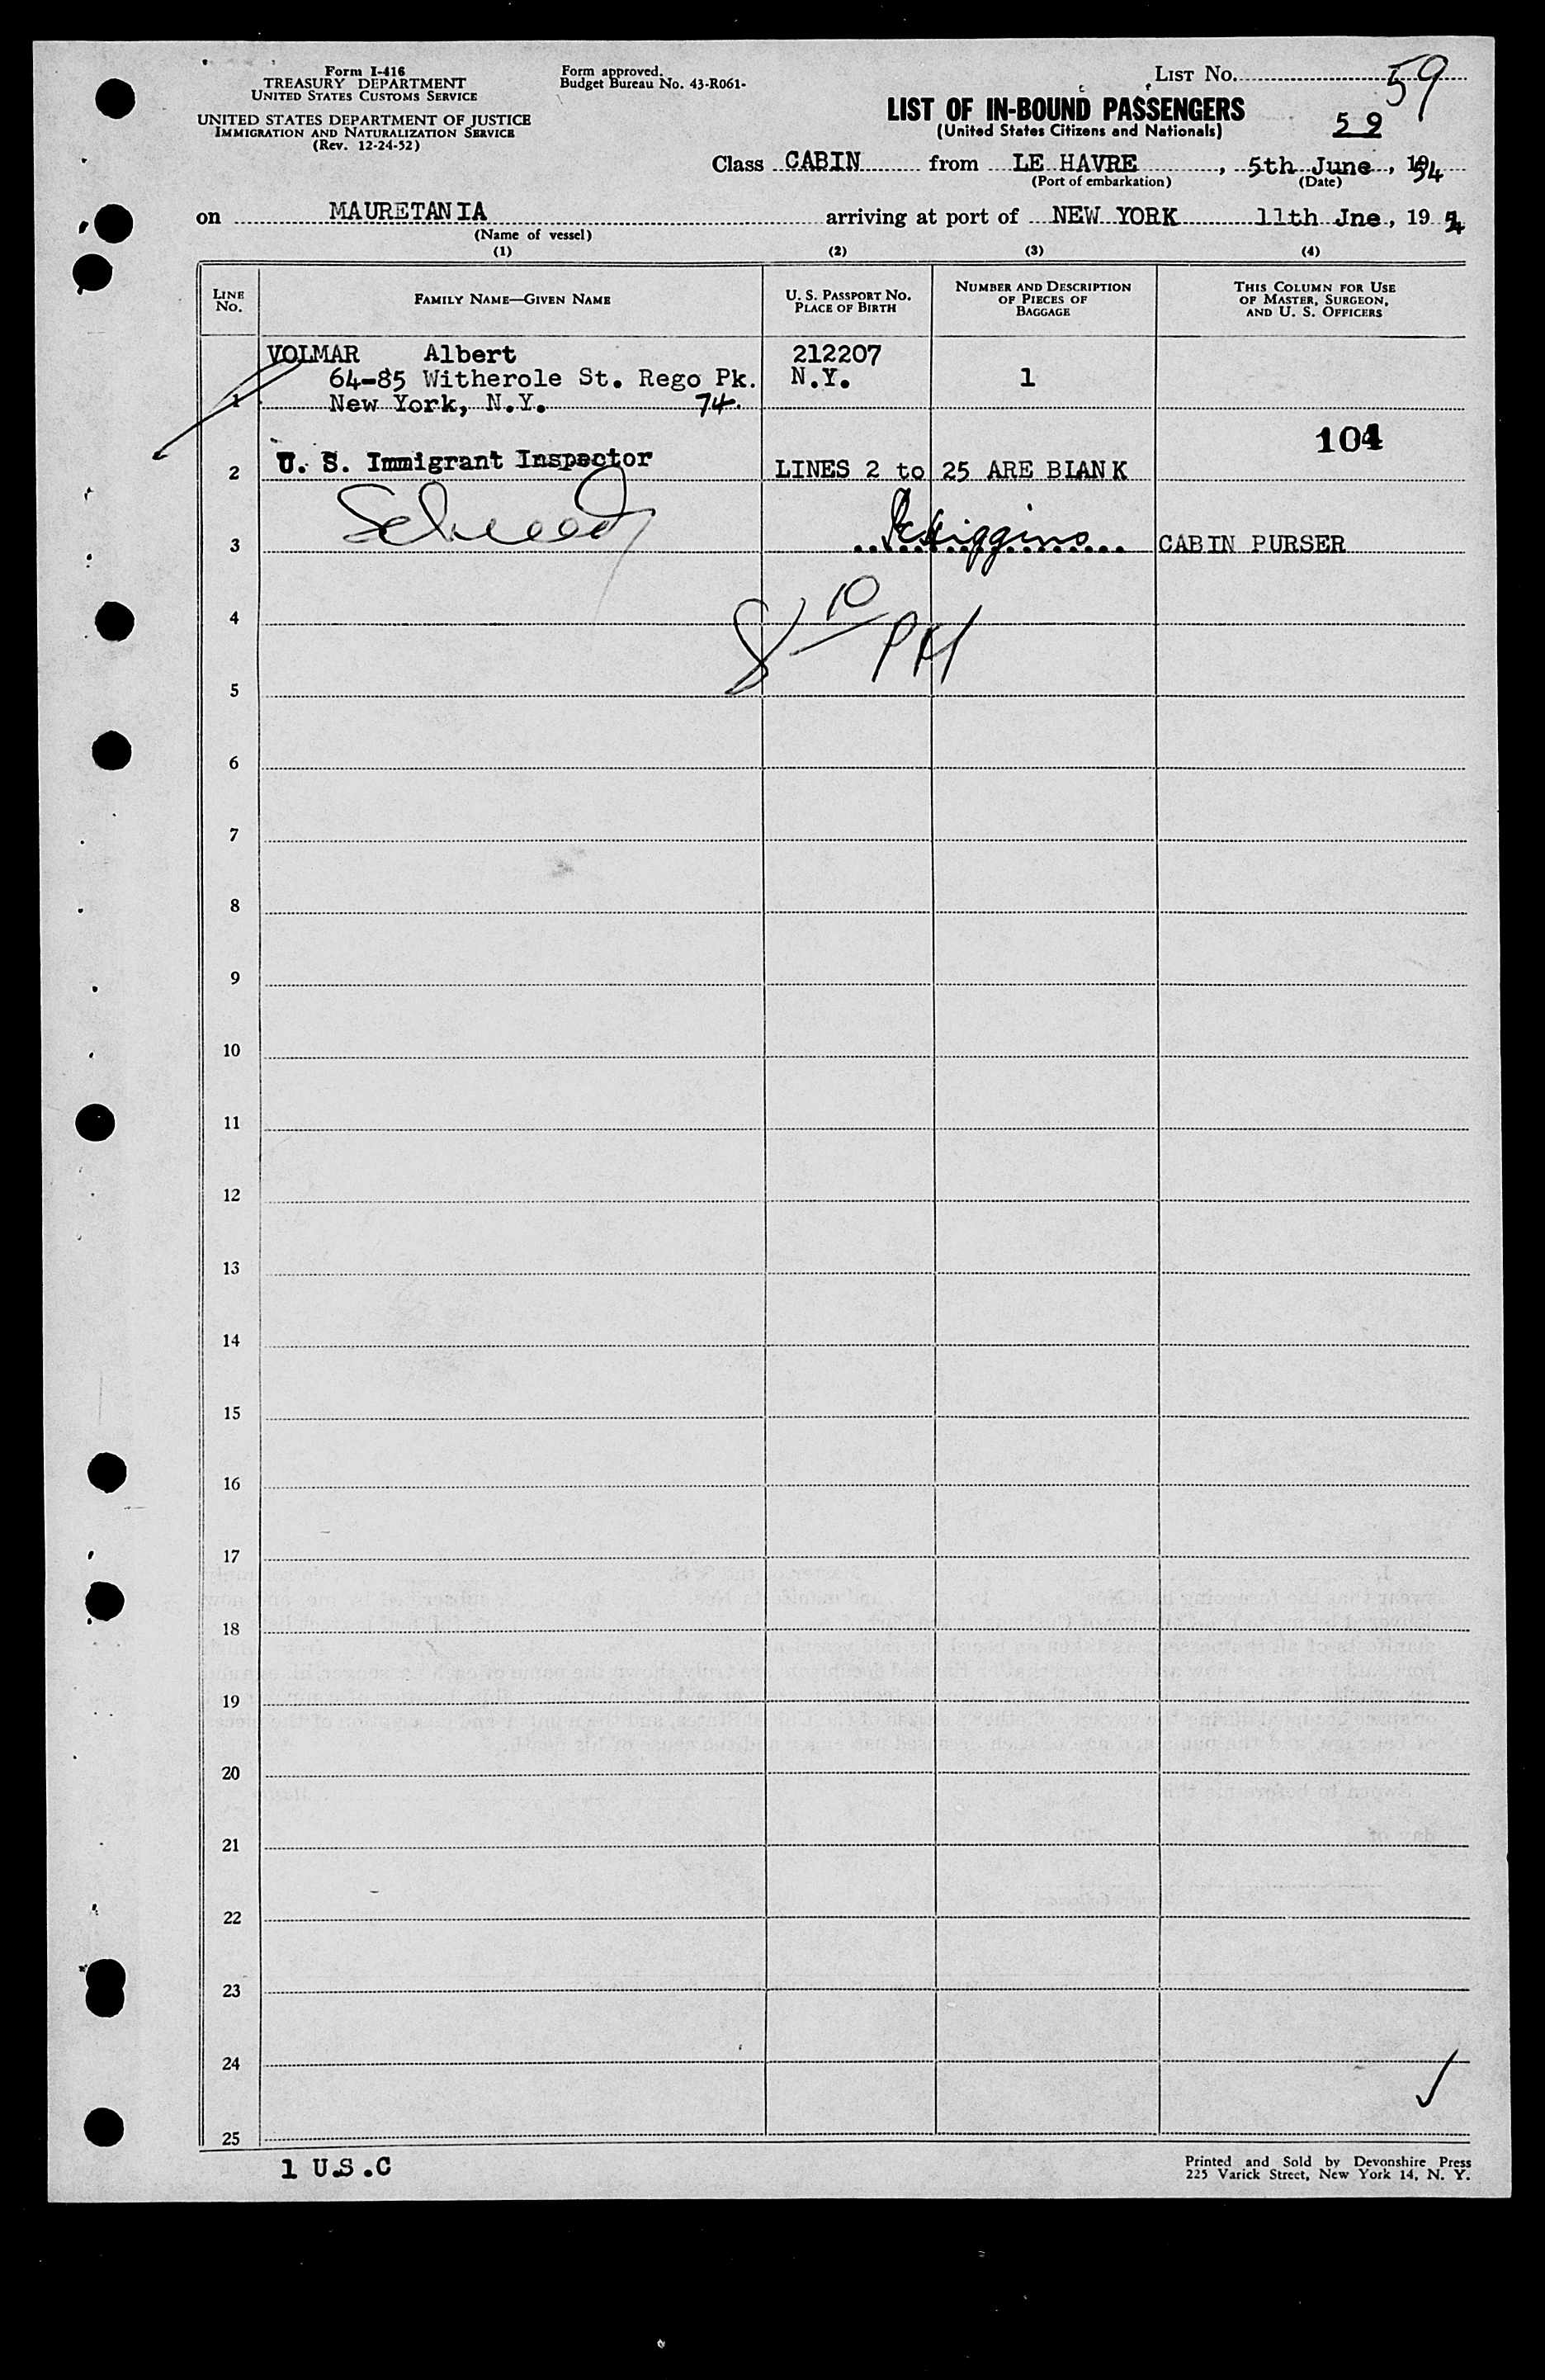 Form I-416
TREASURY DEPARTMENT
UNITED STATES CUSTOMS SERVICE
UNITED STATES DEPARTMENT OF JUSTICE
IMMIGRATION AND NATURALIZATION SERVICE
(Rev. 12-24-52)
Form approved.
Budget Bureau No. 43-R061-
LIST No. 59
LIST OF IN-BOUND PASSENGERS
(United States Citizens and Nationals)
59
Class CABIN from LE HAVRE, 5th June, 1954
(Port of embarkation) (Date)
on MAURETANIA arriving at port of NEW YORK 11th Jne, 19 54
(Name of vessel)
(1) (2) (3) (4)
LINE No. FAMILY NAME—GIVEN NAME U. S. PASSPORT NO. PLACE OF BIRTH NUMBER AND DESCRIPTION OF PIECES OF BAGGAGE THIS COLUMN FOR USE OF MASTER, SURGEON, AND U. S. OFFICERS
VOLMAR Albert 212207
64-85 Witherole St. Rego Pk. N.Y. 1
1 New York, N.Y. 74.
104
U. S. Immigrant Inspector
2 LINES 2 to 25 ARE BLANK
3 Higgins CABIN PURSER
8 10 PM
4
5
6
7
8
9
10
11
12
13
14
15
16
17
18
19
20
21
22
23
24
25
1 U.S.C
Printed and Sold by Devonshire Press
225 Varick Street, New York 14, N. Y.